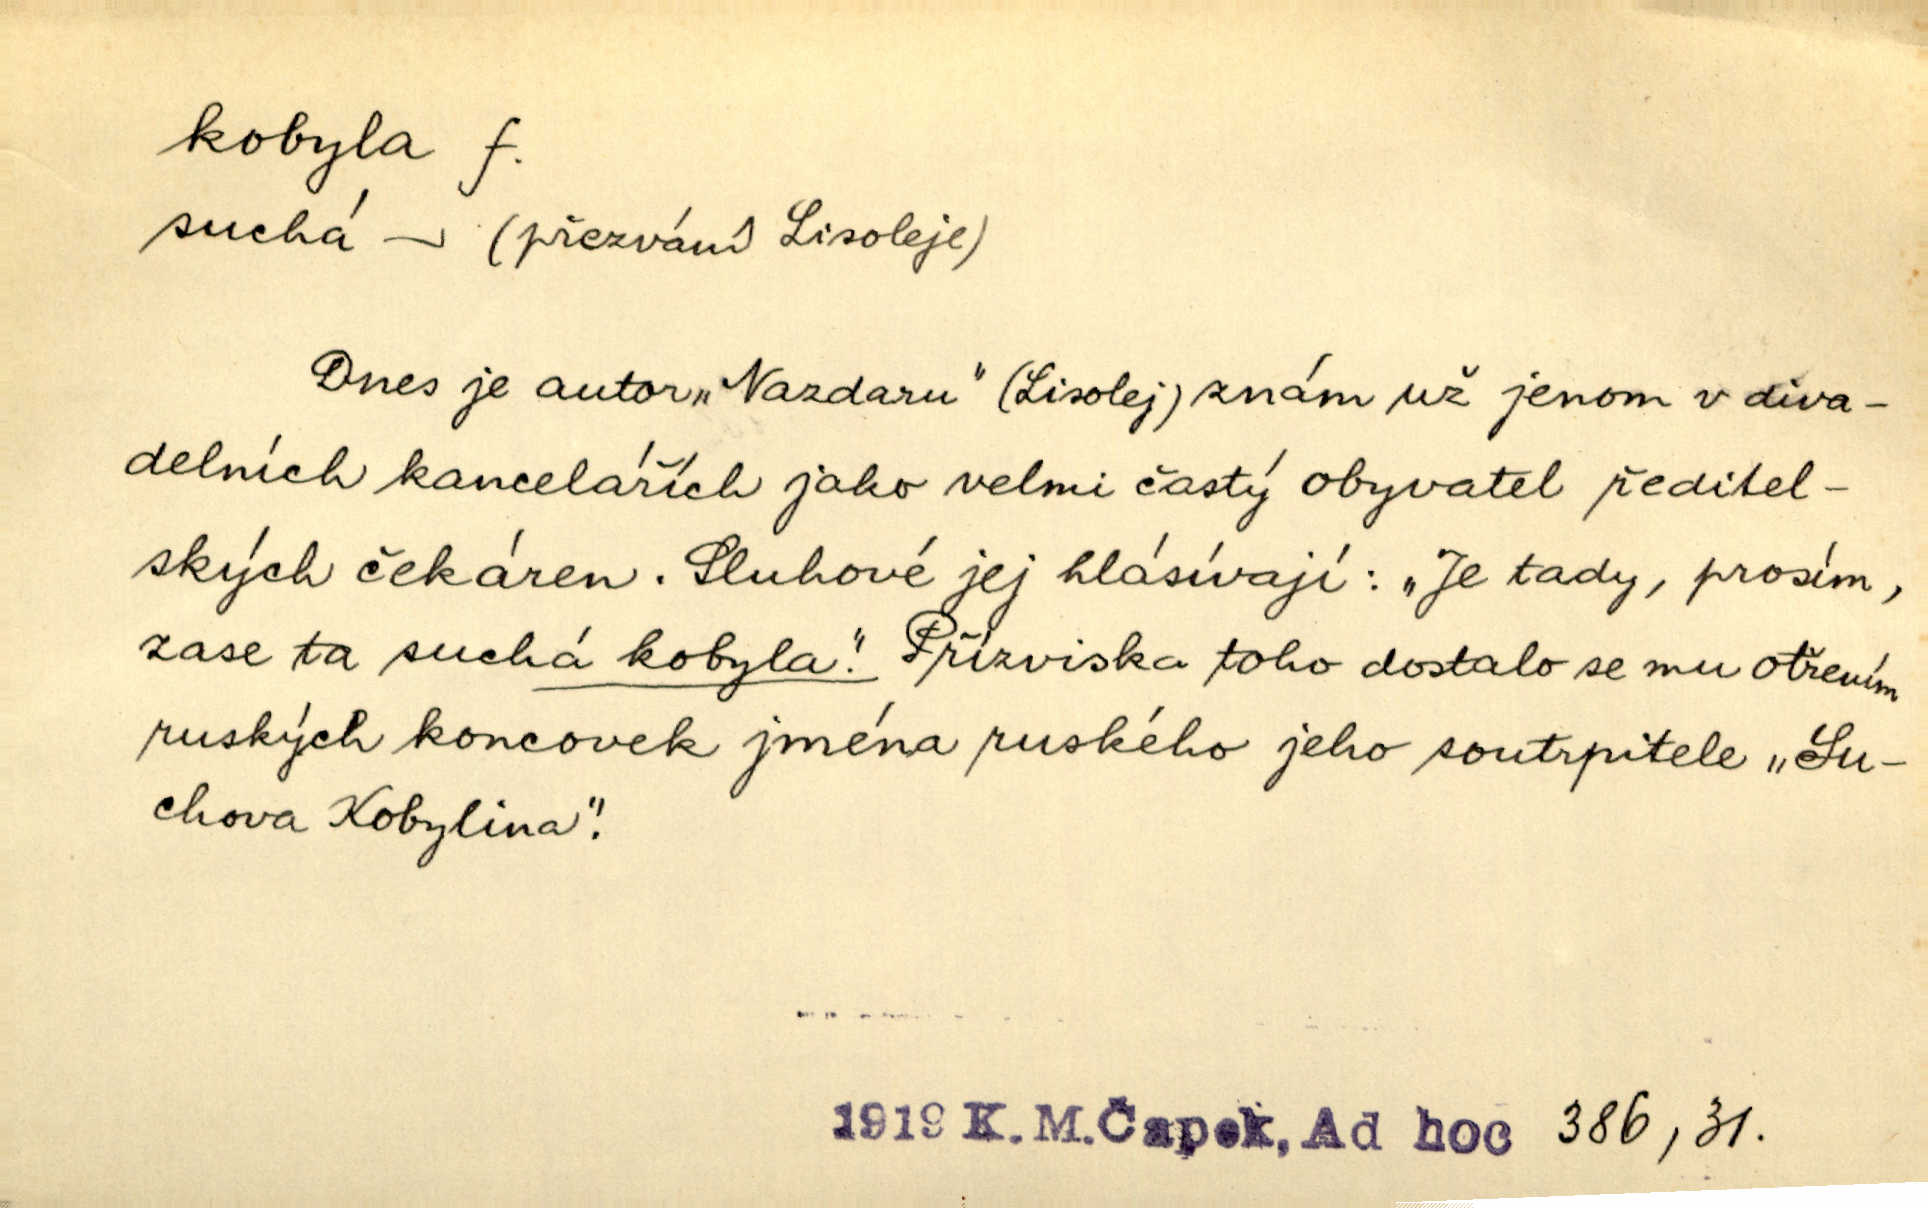 kobyla f.
suchá — (přezvání Lisoleje)
Dnes je autor „Nazdaru" (Lisolej) znám už jenom v diva-
delních kancelářích jako velmi častý obyvatel ředitel-
ských čekáren. Sluhové jej hlásívají: „Je tady, prosím,
zase ta suchá kobyla". Přízviska toho dostalo se mu otřením
ruských koncovek jména ruského jeho soutrpitele „Su-
chova Kobylina".
1919 K. M. Čapek, Ad hoc 386, 31.